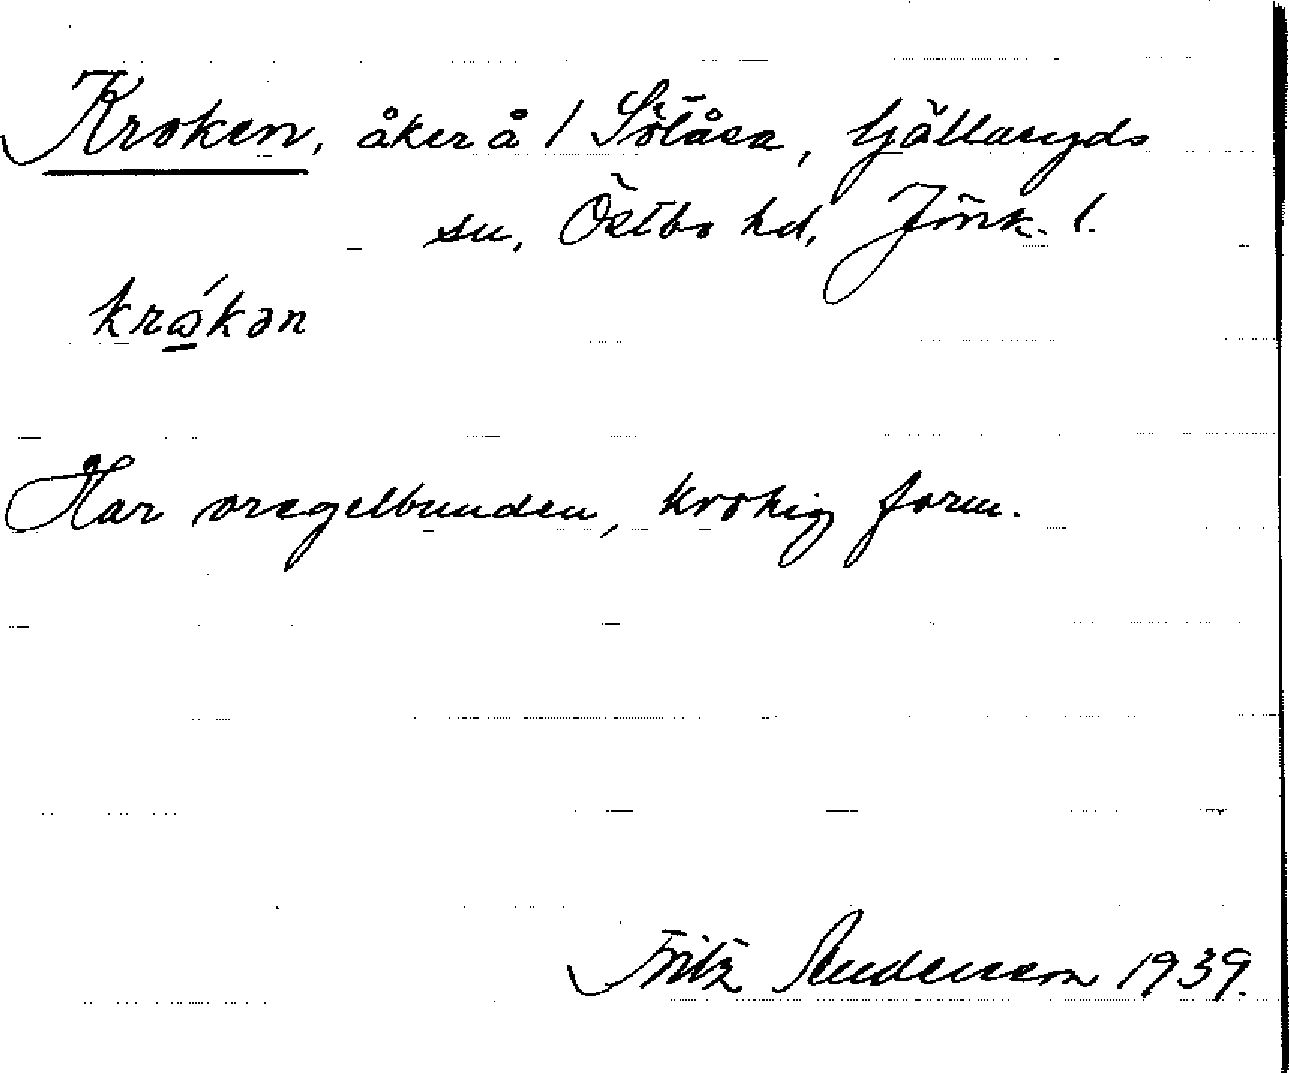 Kroken, åker å / Sötåsa, hjälmseryds
sn, Östbo hd, Jönk. l.
krókən
Har oregelbunden, krokig form.
Fritz Andersson 1939.